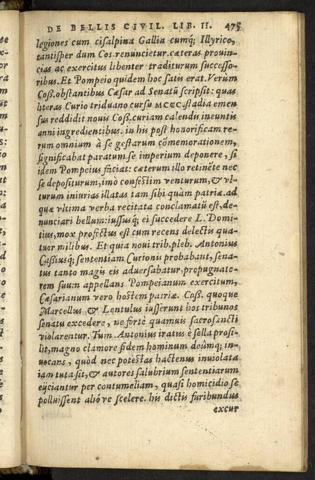 DE BELLIS CIVIL. LIB. II. 475
legiones cum cisalpina Gallia cumq́; Illyrico,
tantisper dum Cos. renuncietur. cæteras prouin-
cias ac exercitus libenter traditurum successo-
ribus. Et Pompeio quidem hoc satis erat. Verùm
Coß. obstantibus Cæsar ad Senatũ scripsit: quas
literas Curio triduano cursu MCCC stadia emen-
sus reddidit nouis Coß. curiam calendis ineuntis
anni ingredientibus. in his post honorificam re-
rum omnium à se gestarum cõmemorationem,
significabat paratum se imperium deponere, si
idem Pompeius faciat: cæterum illo retinẽte nec
se depositurum, imò confestim venturum, & vl-
turum iniurias illatas tam sibi quàm patriæ. ad
quæ vltima verba recitata conclamatũ est, de-
nunciari bellum: iussusq́; ei succedere L. Domi-
tius, mox profectus est cum recens delectis quat-
tuor milibus. Et quia noui trib. pleb. Antonius
Caßiusq́; sententiam Curionis probabant, sena-
tus tanto magis eis aduersabatur. propugnato-
rem suum appellans Pompeianum exercitum,
Cæsarianum vero hostem patriæ. Coß. quoque
Marcellus & Lentulus iusserunt hos tribunos
senatu excedere, ne fortè quamuis sacrosancti
violarentur. Tum Antonius iratus è sella prosi-
lit, magno clamore fidem hominum deûmq́; in-
uocans, quòd nec potestas hactenus inuiolata
iam tuta sit, & autores salubrium sententiarum
eijciantur per contumeliam, quasi homicidio se
polluissent alióve scelere. his dictis furibundus
excur